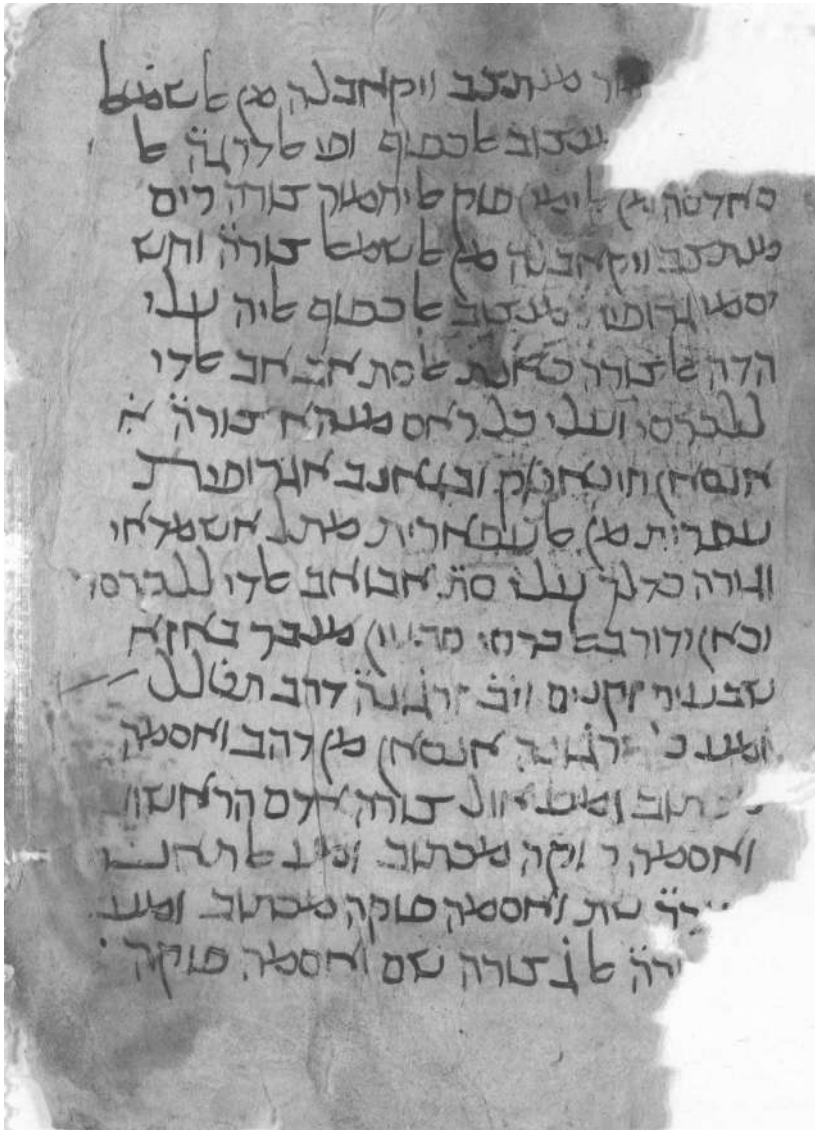 מנתצב ויקאבלה מן אלשמאל
מנצוב אלכפוף ופי אלדרגה אל
סאדסה מן אלימין פוק אליחמוק צורה רים
מנתצב ויקאבלה מן אלשמאל צורה̈ וחש
יסמי גרופין מנצוב אלכפוף אליה עלי
הדה אלצורה כאנת אלסת אבואב אלדי
ללכרסי ועלי כל ראס מנהא צורה̈ א
אנסאן חונאטק ובגאנב אגרופין
עפרית מן אלעפארית מתל אשמדאי
וגירה כדלך עלי סת̈ אבואב אלדי ללכרסי
וכאן ידור באלכרסי מנבר באזא
שבעיר זקנים ויב̈ דרגה̈ דהב תטלל
ומע כל אנסאן מן דהב ואסמה
מכתוב ומע אול צורה אדם הראשון
ואסמה פוקה מכתוב ומע אלתאני
צורה̈ שת ואסמה פוקה מכתוב ומע
אלג̇ צורה שם ואסמה פוקה